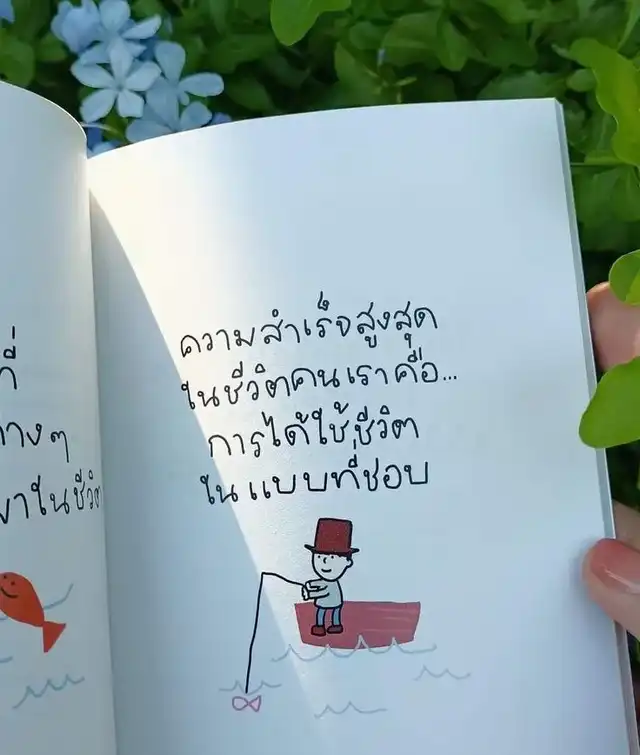 ที่
ต่างๆ
ในชีวิต
ความสำเร็จสูงสุด
ในชีวิตคนเราคือ...
การได้ใช้ชีวิต
ใน แบบที่ชอบ